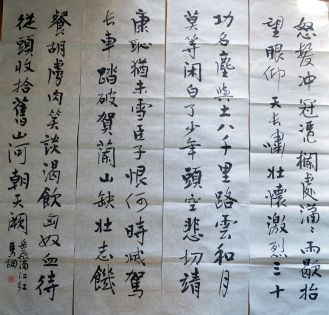 怒髮冲冠憑欄處瀟々雨歇抬
望眼仰天長嘯壯懷激烈三十
功名塵與土八千里路雲和月
莫等闲白了少年頭空悲切靖
康恥猶未雪臣子恨何時滅駕
長車踏破賀蘭山缺壯志饑
餐胡虜肉笑談渴飲匈奴血待
從頭收拾舊山河朝天闕
岳飛滿江红